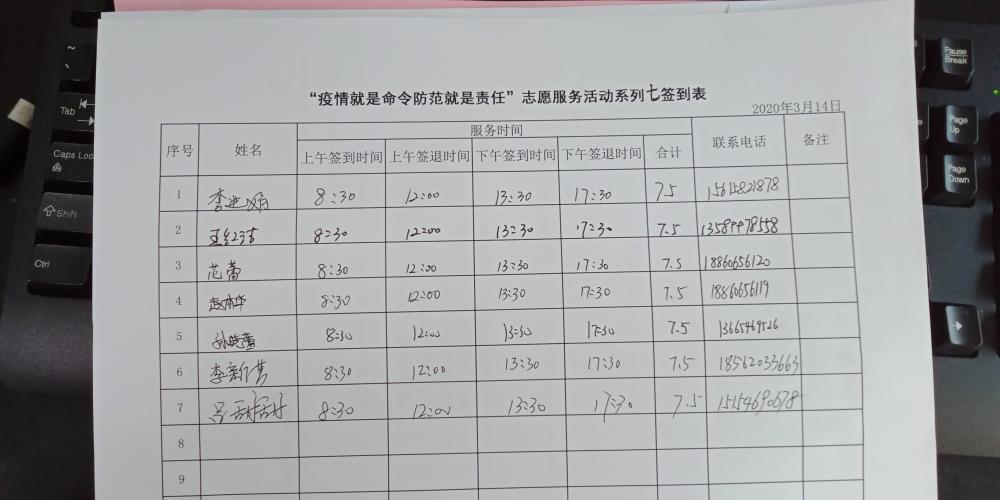 “疫情就是命令防范就是责任”志愿服务活动系列七签到表
2020年3月14日
序号 姓名 服务时间 联系电话 备注
上午签到时间 上午签退时间 下午签到时间 下午签退时间 合计
1 李进 8:30 12:00 13:30 17:30 7.5 15615821878
2 王红洁 8:30 12:00 13:30 17:30 7.5 13589978558
3 范蕾 8:30 12:00 13:30 17:30 7.5 18860656120
4 赵本华 8:30 12:00 13:30 17:30 7.5 18860656119
5 孙晓蕾 8:30 12:00 13:30 17:30 7.5 13665469526
6 李新 8:30 12:00 13:30 17:30 7.5 18562033663
7 吕 8:30 12:00 13:30 17:30 7.5 15154690678
8
9
~
Tab
Caps Loc
Shift
Ctrl
Pause
Break
Page
Up
Page
Down